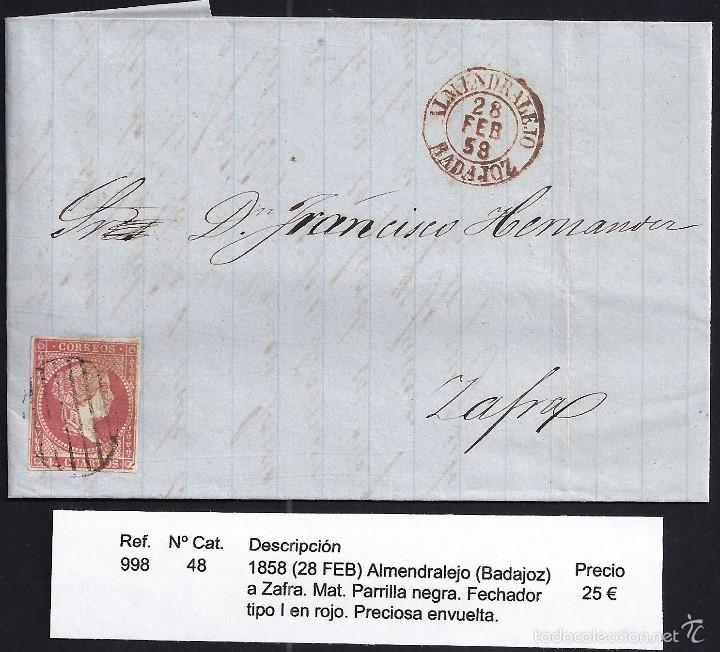 ALMENDRALEJO
28
FEB
58
BADAJOZ
Dn Francisco Hernandez
Zafra
CORREOS
4 CUARTOS
Ref. Nº Cat. Descripción Precio
998 48 1858 (28 FEB) Almendralejo (Badajoz) 25 €
a Zafra. Mat. Parrilla negra. Fechador
tipo I en rojo. Preciosa envuelta.
todocoleccion.net
tc